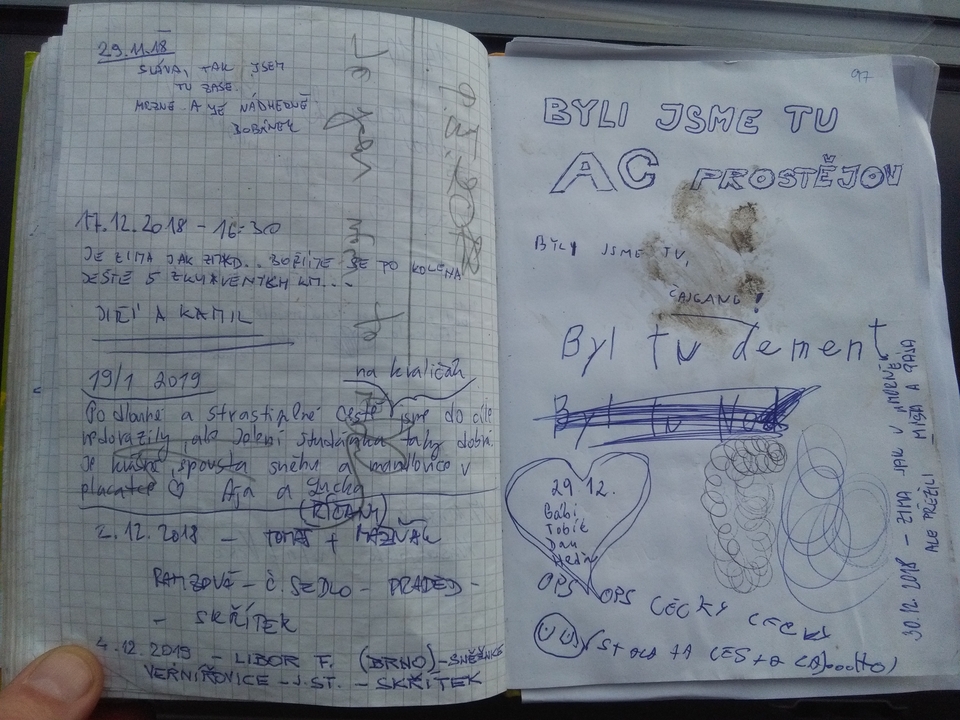 29.11.18
SLÁVA, TAK JSEM
TU ZASE.
A JE NÁDHERNĚ
17.12.2018 - 16:30
JE ZIMA JAK BOŘÍTE SE PO KOLENA
JEŠTĚ 5 KM...
JIŘÍ A KAMIL
19/1 2019
na kraličák
Po dlouhé a strastiplné cestě jsme do cíle
nedorazily ale Jelení studánka taky dobrá.
Je krásně, spousta sněhu a mandlovice v
placatce ♡ Ája a Lucka
(ŘÍČANY)
2.12.2018 - TOMÁŠ +
RAMZOVÁ - Č. SEDLO - PRADĚD -
- SKŘÍTEK
4.12.2019 - LIBOR F. (BRNO) - SNĚŽNÍK
VERNÍŘOVICE - J.ST. - SKŘÍTEK
97
BYLI JSME TU
AC PROSTĚJOV
BYLY JSME TU,
ČAJGANG!
Byl tu dement
Byl tu
29.12.
Gábi
Tobík
Dan
OPS OPS CECKY CECKY
30.12.2018 - ZIMA JAK V
ALE PŘEŽILI MÍŠA A GÁJA